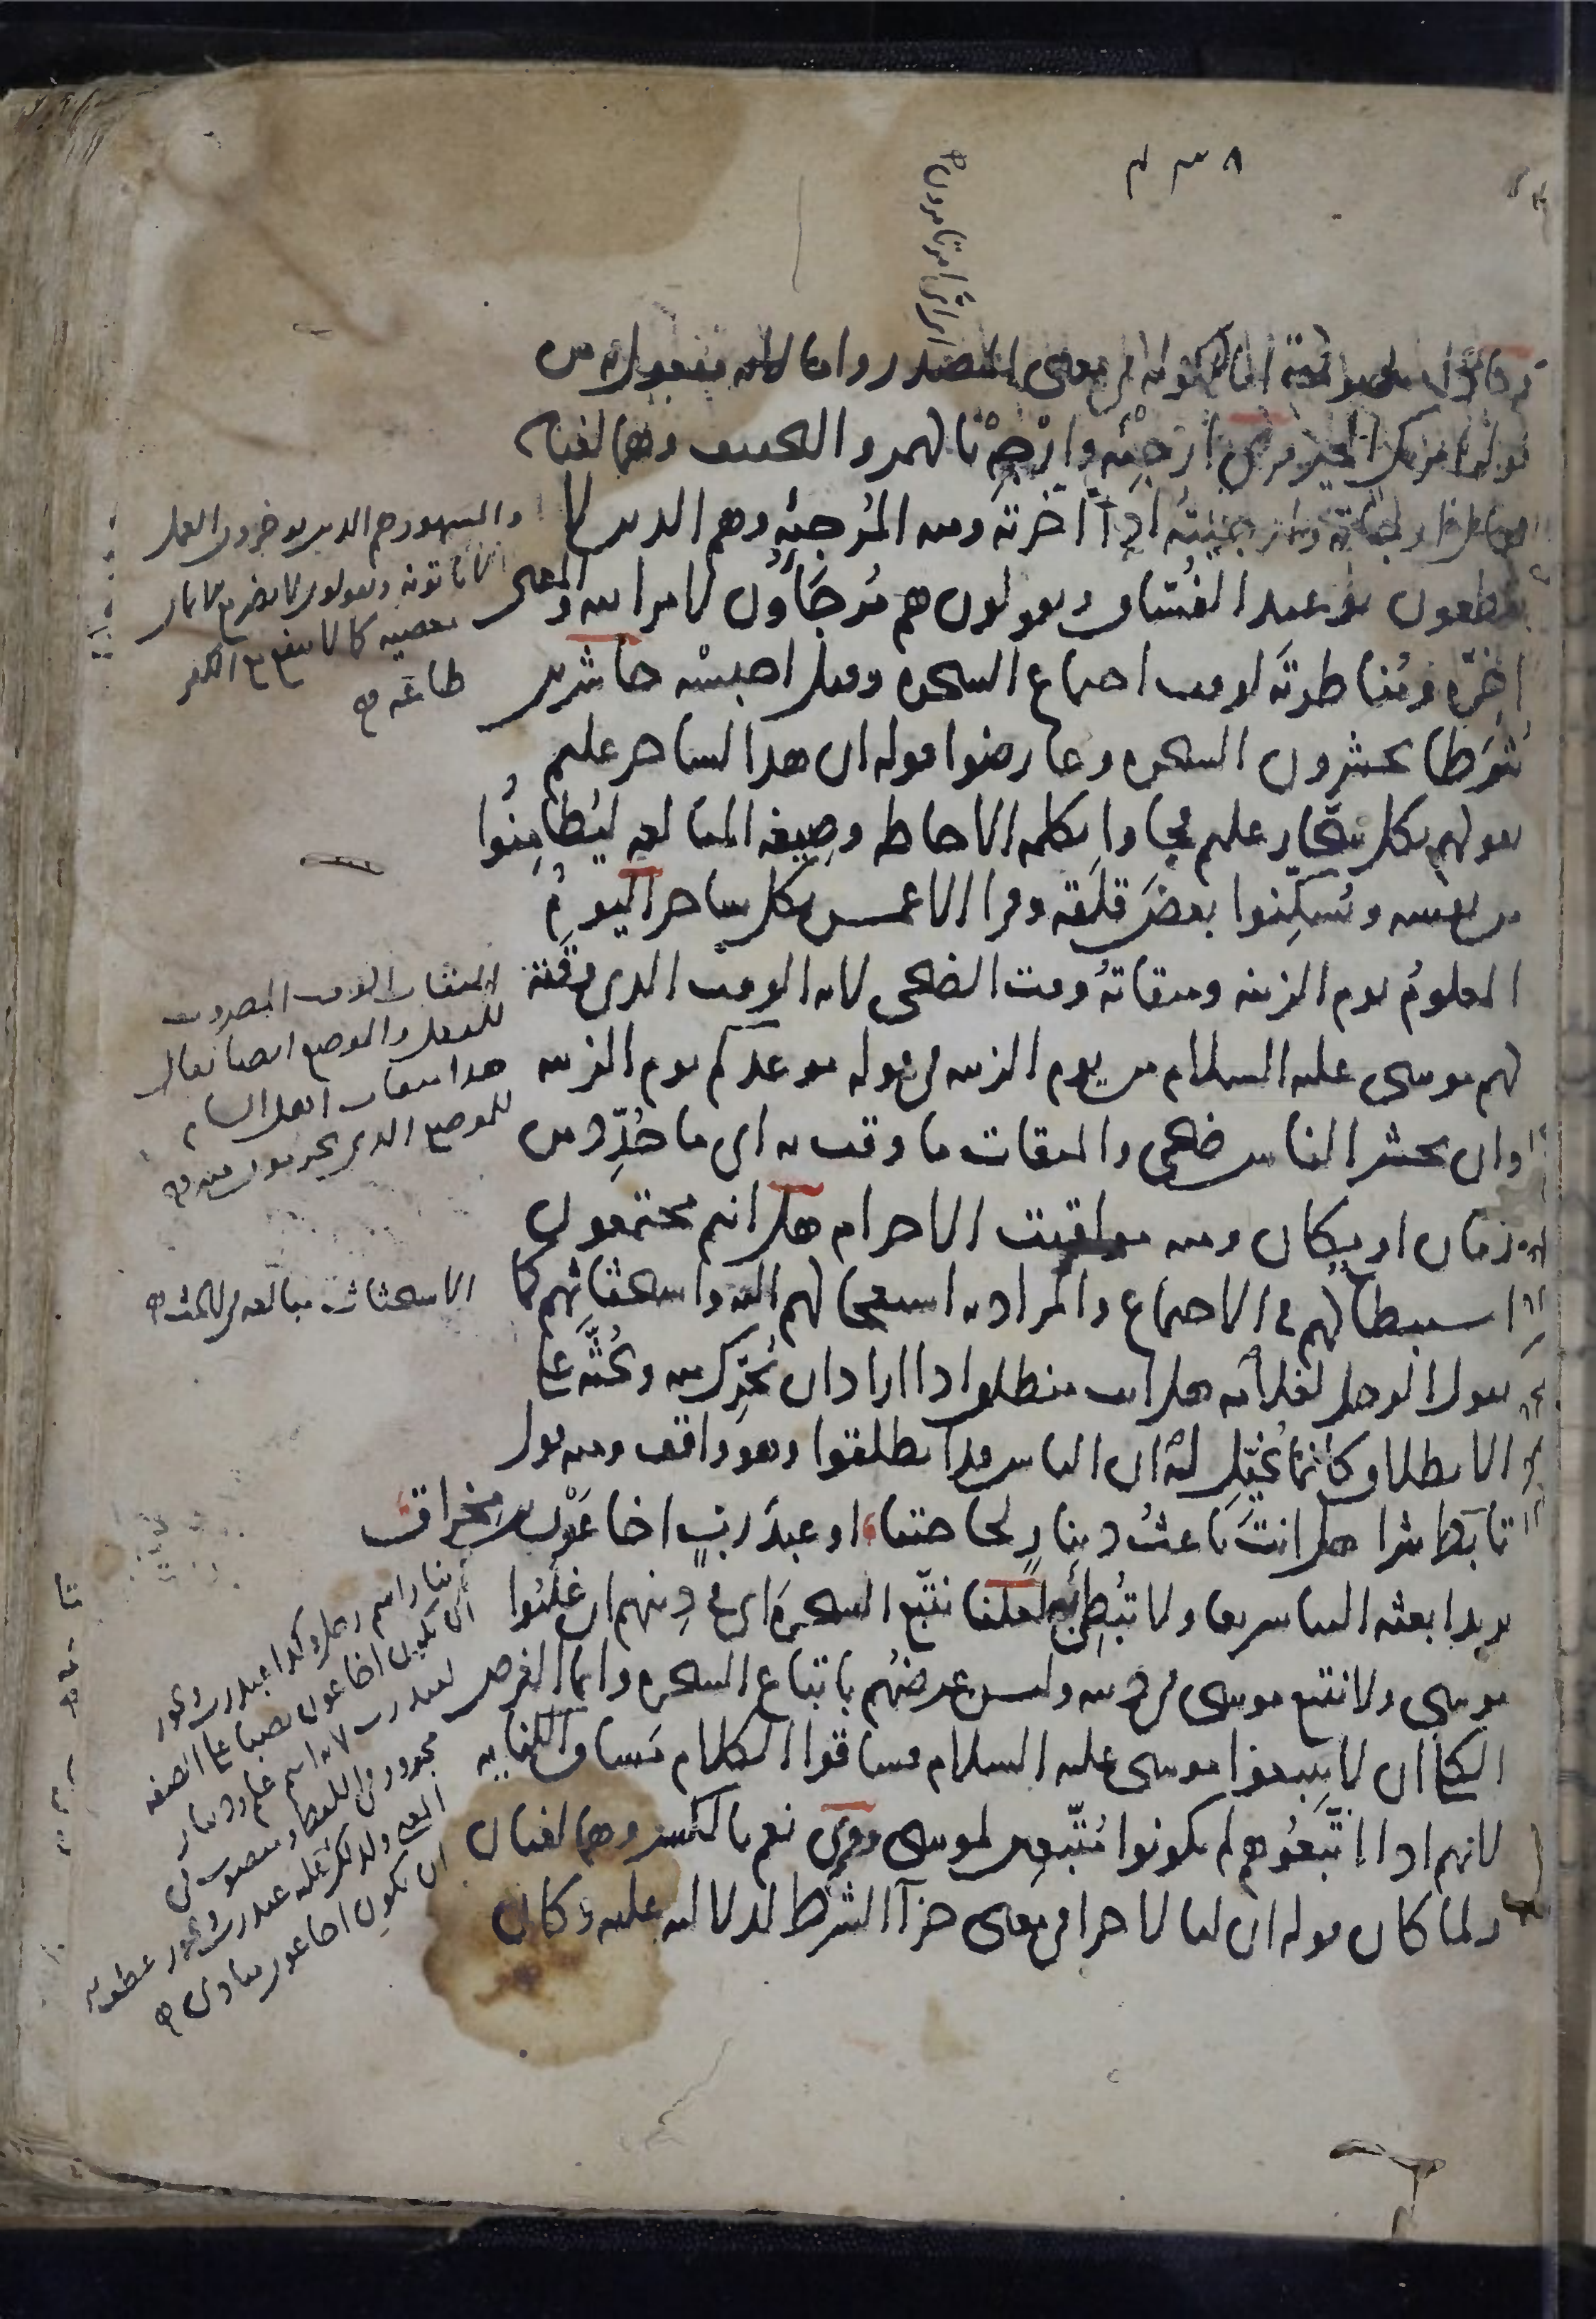 ٤٣٨
اما لكونه في معنى المصدر واما لانه مفعول به من
قوله امرتك الخير وقرئ ارجئه وارجه بالهمز والتخفيف وهما لغتان
اذا اخرته ومنه المرجئة وهم الذين لا
يقطعون بوعيد الفُسّاق ويقولون هم مُرجَاؤُن لامر الله والمعنى
اخّره ومُناظرتَه لوقت اجتماع السحرة وقيل احبسْه حاشرين
شُرَطا يحشرون السحرة وعارضوا قوله ان هذا لساحر عليم
بقولهم بكل سحّار عليم فجاوا بكلمة الاحاطة وصيغة المبالغة ليُطامِنُوا
من نفسه ويُسكّنوا بعضَ قلقه وقرا الاعمش بكل ساحر اليومُ
المعلومُ يوم الزينة وميقاتهُ وقت الضحى لانه الوقت الذي وقّته
لهم موسى عليه السلام من يوم الزينة في قوله موعدكم يوم الزينة
وان يحشر الناس ضحى والميقات ما وقت به اي ما حُدِّد من
زمان او مكان ومنه مواقيت الاحرام هل انتم مجتمعون
استبطاء لهم في الاجتماع والمراد به استعجالهم واستحثاثهم كما
يقول الرجل لغلامه هل انت منطلق اذا اراد ان يُحرّك منه ويحُثّه على
الانطلاق كانما يُخيّل له ان الناس قد انطلقوا وهو واقف ومنه قول
تابّط شرا هل انتَ باعثُ دينارٍ لحاجتنا او عبدَ ربٍ اخا عَوْن بن مخراق
يريد ابعثه الينا سريعا ولا تُبطِئ به لعلنا نتّبع السحرةَ اي في دينهم ان غلبُوا
موسى ولا نتبع موسى في دينه وليس غرضهُم باتباع السحرة وانما الغرض
الكلي ان لا يتبعوا موسى عليه السلام فساقوا الكلام مَساق الكناية
لانهم اذا اتّبعُوهم لم يكونوا مُتّبعين لموسى وقرئ نعم بالكسر وهما لغتان
ولما كان قوله ان لنا لاجرا في معنى جزآ الشرط لدلالته عليه وكان
والمشهور هم الذين يوخرون العمل
ويقولون لا يضر مع الايمان
معصية كما لا ينفع مع الكفر
طاعة
الميقات الوقت المضروب
للفعل والموضع ايضا يقال
هذا ميقات اهل الشام
للموضع الذي يحرمون منه
الاستحثاث مبالغة في الحث
دينار اسم رجل وكذا عبد رب ويجوز
ان يكون اخا عون نصبا على الصفة
لعبد رب لانه اسم علم ودينار
مجرور في اللفظ ومنصوب في
المعنى ولذلك عبد رب ويجوز
ان يكون اخا عون منادى